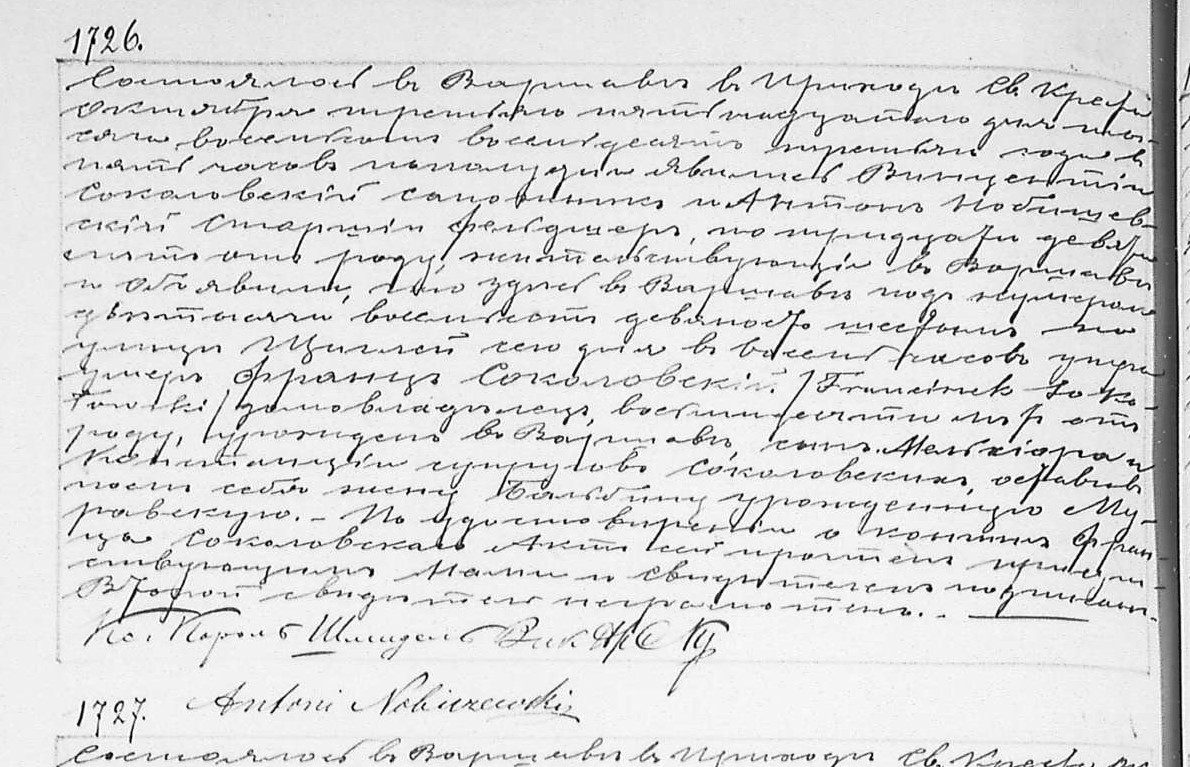 1726.
Состоялось въ Варшавѣ въ Приходѣ Св. Креста
Октября третьяго пятнадцатаго дня ты-
сяча восемьсотъ восемьдесятъ третьяго года въ
пять часовъ пополудни явились Винцентій
Соколовскій сапожникъ и Антонъ Нобишев-
скій старшій фельдшеръ, по тридцати девяти
лѣтъ отъ роду, жительствующіе въ Варшавѣ
и объявили, что здѣсь въ Варшавѣ подъ нумеромъ
двѣ тысячи восемьсотъ девяносто шестымъ по
улицѣ сего дня въ восемь часовъ утра
умеръ Францъ Соколовскій /Franciszek Soko-
łowski/ домовладѣлецъ, восьмидесяти лѣтъ отъ
роду, урожденъ въ Варшавѣ, сынъ Мельхіора и
Констанціи супруговъ Соколовскихъ, оставивъ
послѣ себя жену Бальбину урожденную Му-
равскую. – По удостовѣреніи о кончинѣ Фран-
ца Соколовскаго Актъ сей прочтенъ присут-
ствующимъ Нами и свидѣтелемъ подписанъ.
Второй свидѣтель неграмотенъ. –
Кс. Кароль Шмидель Вик. П. С. К.
Antoni Nobiszewski
1727.
Состоялось въ Варшавѣ въ Приходѣ Св. Креста